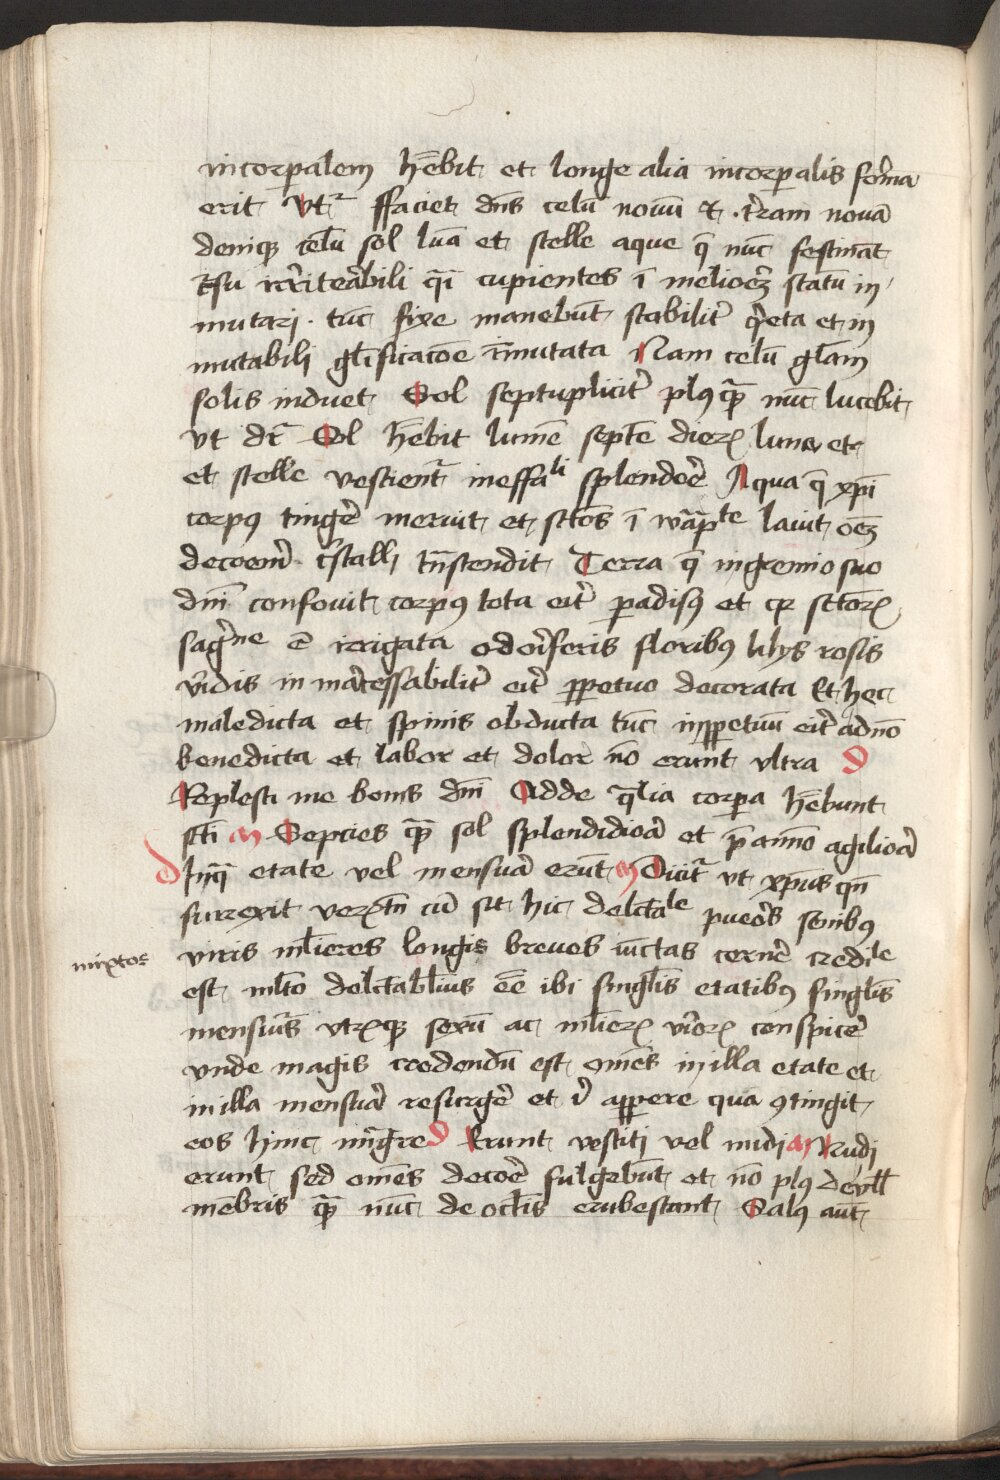 incorp̱alem hēbit et longe alia incorp̱alis for̄ma
erit Vt᷑ ffaciet dn̄s celū nouū et t̓ram nouā
deniqꝫ celū sol lūa et stelle aque q̄ nūc festināt
c̓su irr̓iteābili q̄i cupientes ī melioeꝫ statū in
mutari · tūc fixe manebūt stabilit̓ q̓eta et in
mutabili gl̄ificacōe īmutata Nam celū gl̄am
solis induet Sol septuplicit̓ plꝰ qᷓꝫ nūc lucebit
vt dr̄ Sol hēbit lumē septē dieꝝ luna et
et stelle vestient᷑ ineffaˡⁱ splendoe̓ Aqua q̄ xp̄i
corpꝰ tinge̓ meruit et sctōs ī baptᵗᵉ lauit oēꝫ
decoem̓ c̓stalli tn̄scendit Terra q̄ in gremio suo
dn̄i confouit corpꝰ tota eit̓ ꝑadisꝰ et qꝛ sctōꝝ
sagⁱⁿᵉ ē irrigata odoīferis floribꝰ lilijs rosis
v̓idis in marcessabilit̓ eit̓ ꝑpetuo decorata Et hec
maledicta et spinis obducta tūc inꝑpetuū eit̓ a dn̄o
benedicta et labor et dolor nō erunt vltra D
Replesti me bonis dn̄i Adde q̄lia corp̱a hēbunt
scti M Sepcies qᷓꝫ sol splendidioa̓ et p̄ animo agilioa̓
D Inqᷓ etate vel mensura̓ erūt M Dicit᷑ vt xp̄ius qn̄
surrexit veꝝtn̄ cū sit hic delc̄taˡᵉ pueo̓s senibꝰ
viris ml̄ieres longis breues iūctas cerne̓ crediˡᵉ
mixtos
est ml̄to delc̄tabl̄ius eē ibi singl̄is etatibꝰ singl̄is
mensuīs vtꝝqꝫ sexū ac ml̄ieꝝ v̓ioꝝ conspice̓
vnde magis credendū est om̄es in illa etate et
in illa mensura̓ resurge̓ et ī appere qua ꝯtingit
eos hinc mīgre D Erunt vestiti vel nudi M Nudi
erunt sed om̄es decoe̓ fulgebūt et nō plꝰ de vll̄
mēbris qᷓꝫ nūc de oclīs erubescant Salꝰ aūt